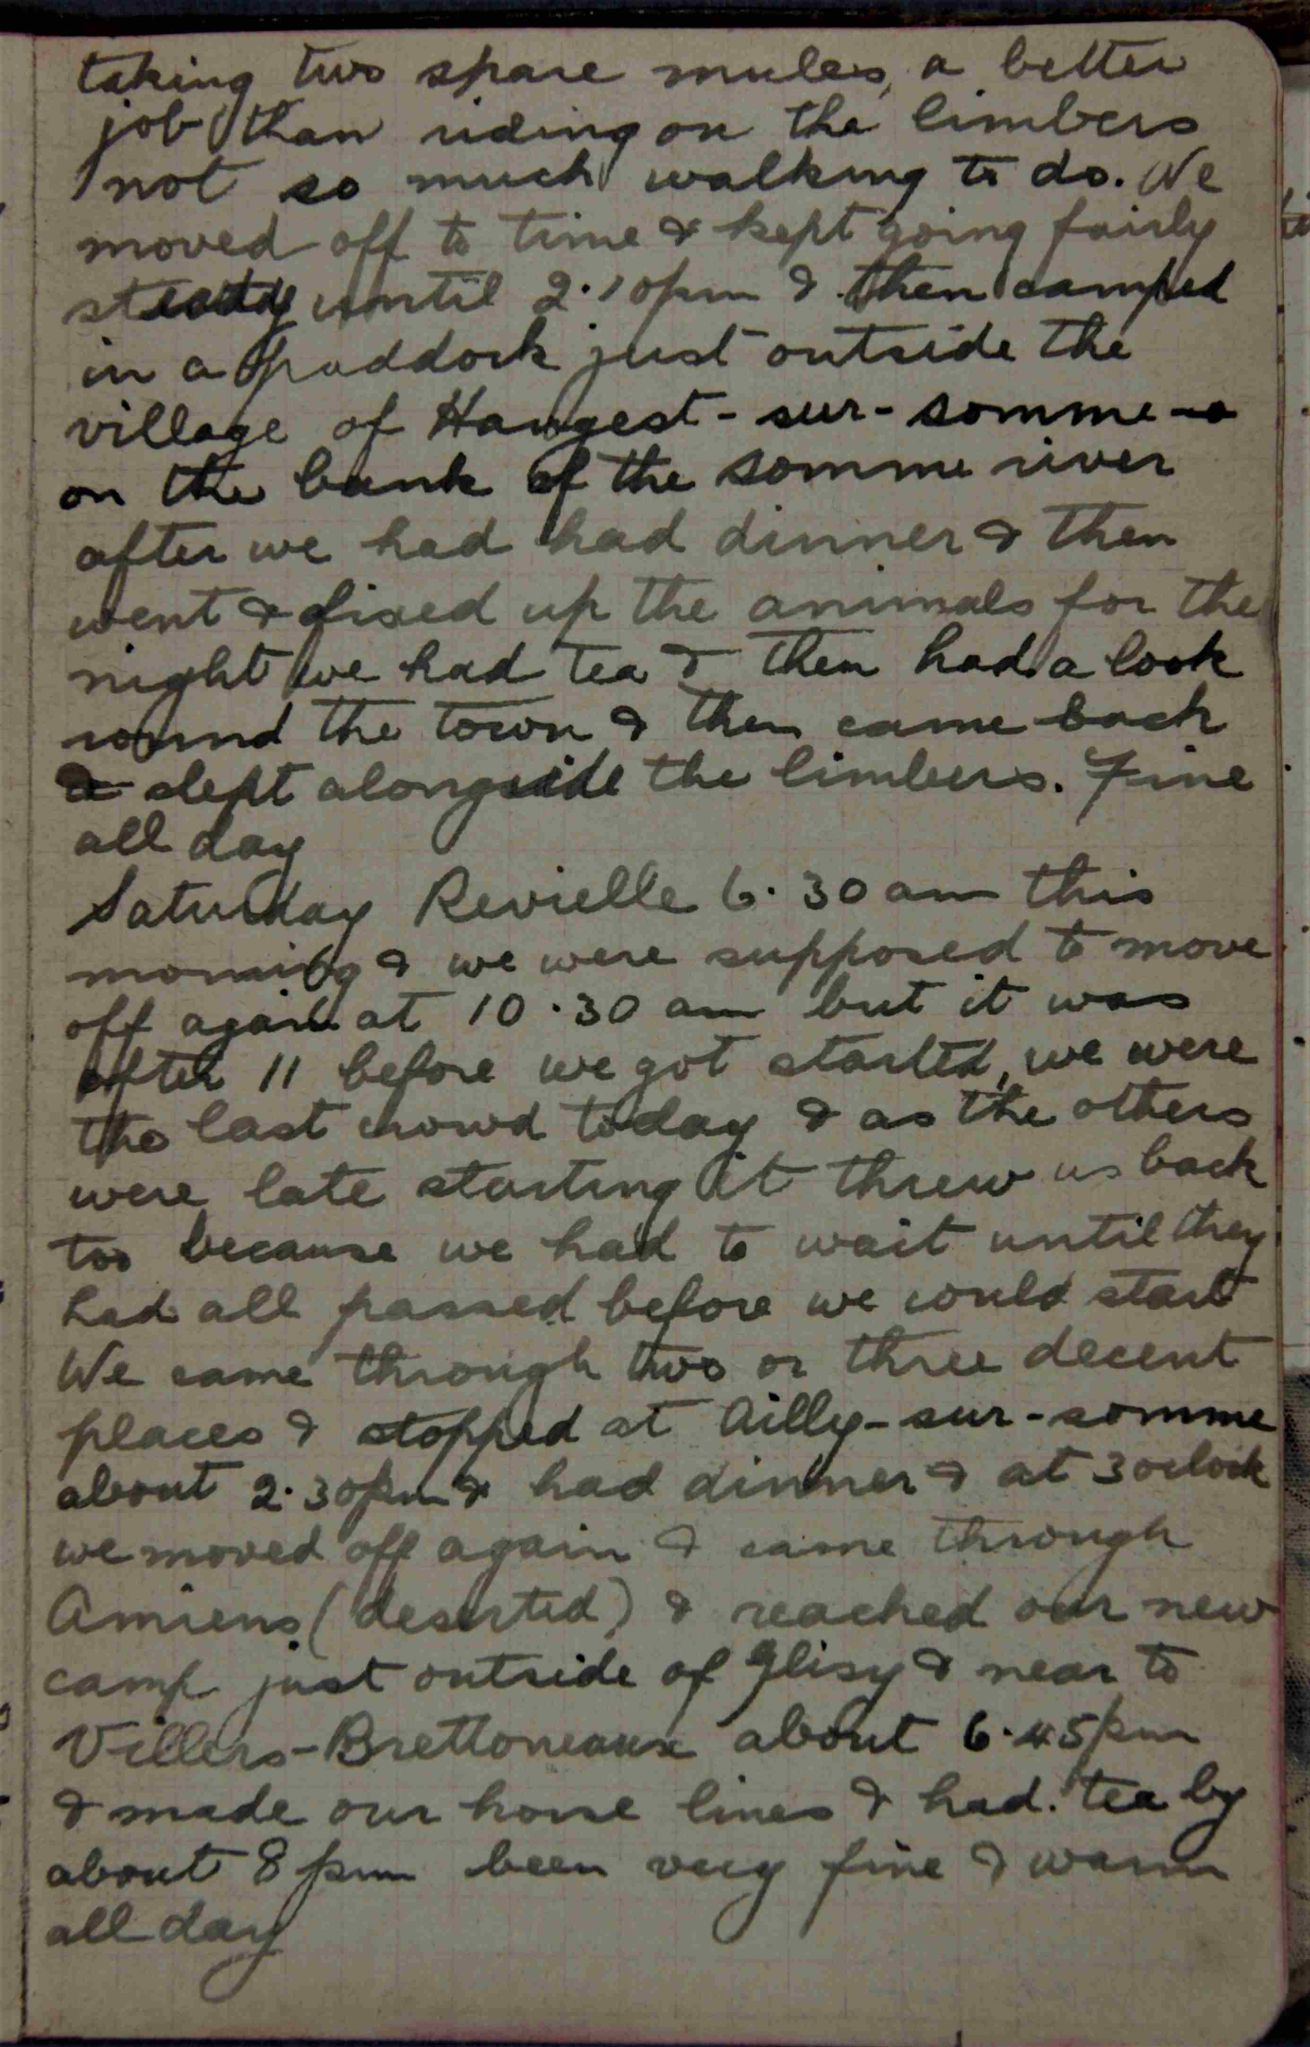 taking two spare mules, a better
job than riding on the limbers
not so much walking to do. We
moved off to time & kept going fairly
steady until 2.10pm & then camped
in a paddock just outside the
village of Hangest-sur-somme
on the bank of the somme river
after we had had dinner & then
went & fixed up the animals for the
night we had tea & then had a look
round the town & then came back
& slept alongside the limbers. Fine
all day
Saturday Revielle 6.30 am this
morning & we were supposed to move
off again at 10.30 am but it was
after 11 before we got started, we were
the last crowd today & as the others
were late starting it threw us back
too because we had to wait until they
had all passed before we could start
We came through two or three decent
places & stopped at Ailly-sur-somme
about 2.30pm & had dinner & at 3 oclock
we moved off again & came through
Amiens (deserted) & reached our new
camp just outside of Glisy & near to
Villers-Brettoneaux about 6.45pm
& made our horse lines & had tea by
about 8pm been very fine & warm
all day